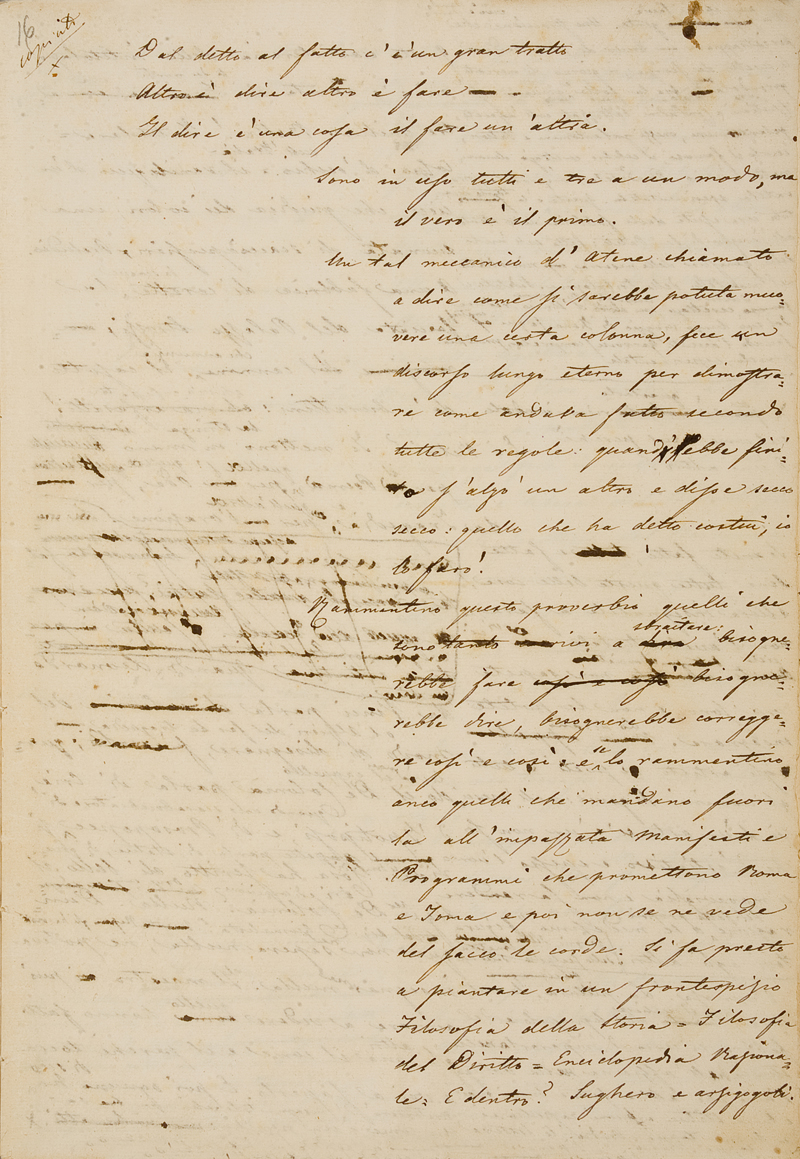 16
copiato
Dal detto al fatto c'è un gran tratto
Altro è dire altro è fare
Il dire è una cosa il fare un'altra.
Sono in uso tutti e tre a un modo, ma
il vero è il primo.
Un tal meccanico d'Atene chiamato
a dire come si sarebbe potuta muo=
vere una certa colonna, fece un
discorso lungo eterno per dimostra=
re come andava fatto secondo
tutte le regole: quand'ebbe fini=
to s'alzò un altro e disse secco
secco: quello che ha detto costui, io
lo farò!
Rammentino questo proverbio quelli che
sono tanto vivi a
strattare: bisogne=
rebbe fare così e così bisogne=
rebbe dire, bisognerebbe corregge=
re così e così: e se lo rammentino
anco quelli che mandano fuori
la all'impazzata Manifesti e
Programmi che promettono Roma
e Toma e poi non se ne vede
del sacco le corde. Si fa presto
a piantare in un frontespizio
Filosofia della Storia = Filosofia
del Diritto = Enciclopedia Raziona=
le = E dentro? Sughero e arzigogoli.